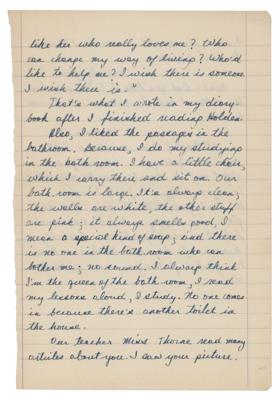 like her who really loves me? Who
can change my way of living? Who'd
like to help me? I wish there is someone.
I wish there is."
That's what I wrote in my diary-
book after I finished reading Holden.
Also, I liked the passages in the
bathroom. Because, I do my studying
in the bath room. I have a little chair,
which I carry there and sit on. Our
bath room is large. It's always clean;
the walls are white, the other stuff
are pink; it always smells good, I
mean a special kind of soap; and there
is no one in the bath room who can
bother me; no sound. I always think
I'm the queen of the bath room, I read
my lessons aloud, I study. No one comes
in because there's another toilet in
the house.
Our teacher Miss Thorne read many
articles about you. I saw your picture.